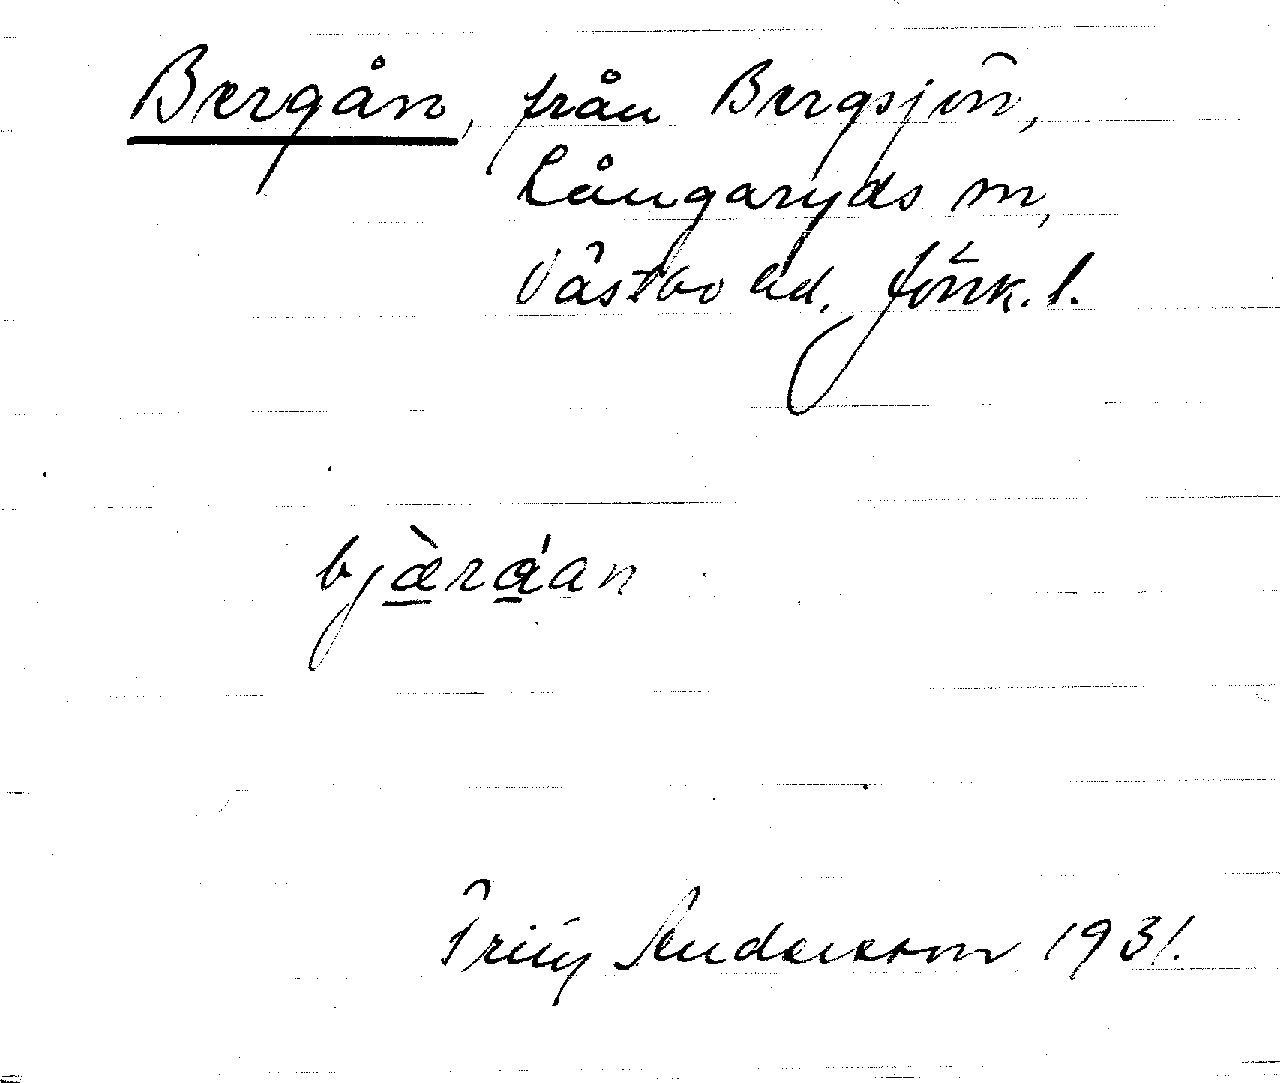 Bergån, från Bergsjön,
Långaryds sn,
Västbo hd. Jönk. l.
bjæ̀rá̱an
Frity Andersson 1931.